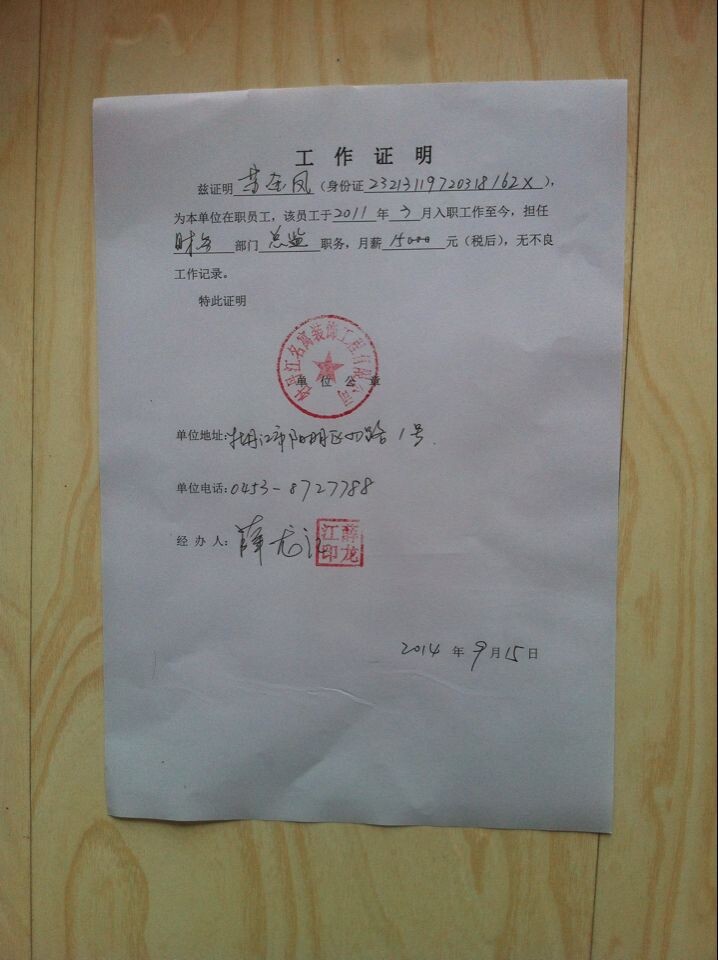 工作证明
兹证明 金凤（身份证23213119720318162X），
为本单位在职员工，该员工于2011年3月入职工作至今，担任
财务部门总监职务，月薪15000元（税后），无不良
工作记录。
特此证明
牡丹江名寓装饰工程有限公司
单位公章
单位地址:牡丹江市阳明区 路1号.
单位电话:0453-8727788
经办人:薛龙江
薛龙江印
2014年9月15日